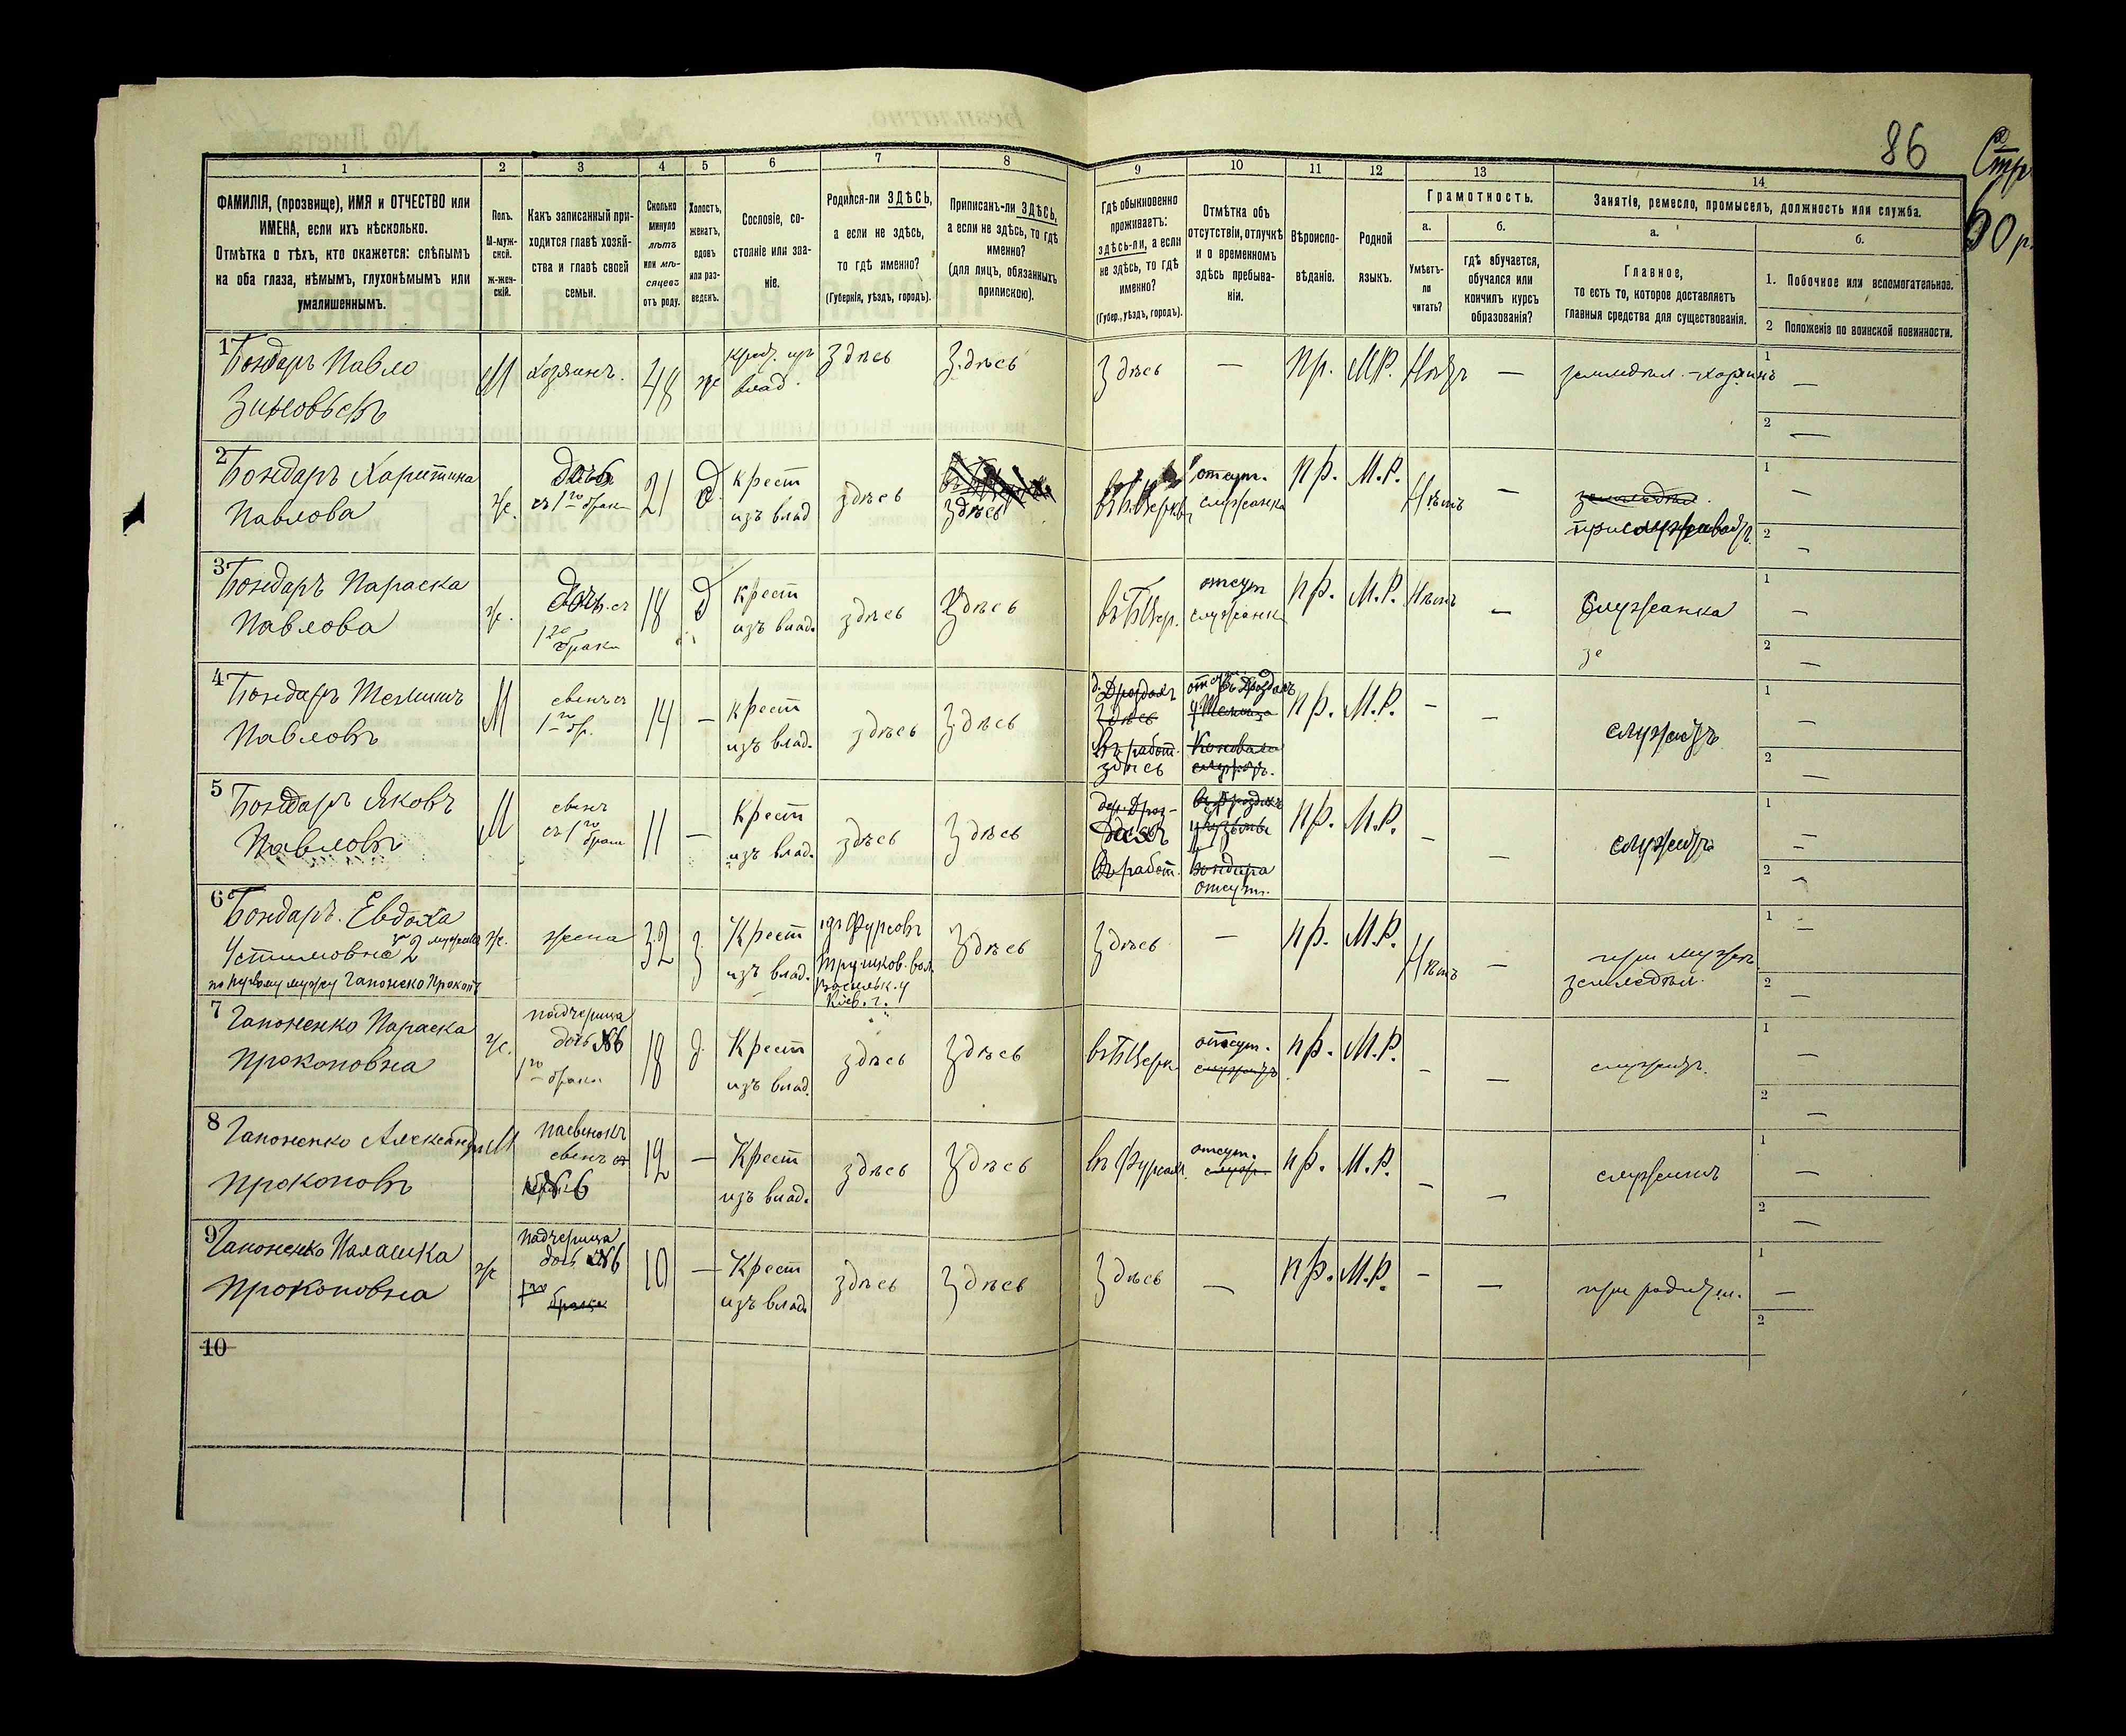 86
Стр
60 р.
1
2
3
4
5
6
7
8
9
10
11
12
13
14
ФАМИЛІЯ, (прозвище), ИМЯ и ОТЧЕСТВО или
ИМЕНА, если ихъ нѣсколько.
Отмѣтка о тѣхъ, кто окажется: слѣпымъ
на оба глаза, нѣмымъ, глухонѣмымъ или
умалишеннымъ.
Полъ.
М-муж-
ской.
ж-жен-
скій.
Какъ записанный при-
ходится главѣ хозяй-
ства и главѣ своей
семьи.
Сколько
минуло
лѣтъ
или мѣ-
сяцевъ
отъ роду.
Холостъ,
женатъ,
вдовъ
или раз-
веденъ.
Сословіе, со-
стояніе или зва-
ніе.
Родился-ли ЗДѢСЬ,
а если не здѣсь,
то гдѣ именно?
(Губернія, уѣздъ, городъ).
Приписанъ-ли ЗДѢСЬ,
а если не здѣсь, то гдѣ
именно?
(для лицъ, обязанныхъ
припискою).
Гдѣ обыкновенно
проживаетъ:
здѣсь-ли, а если
не здѣсь, то гдѣ
именно?
(Губер., уѣздъ, городъ).
Отмѣтка объ
отсутствіи, отлучкѣ
и о временномъ
здѣсь пребыва-
ніи.
Вѣроиспо-
вѣданіе.
Родной
языкъ.
Грамотность.
а.
б.
Умѣетъ-
ли
читать?
гдѣ обучается,
обучался или
кончилъ курсъ
образованія?
Занятіе, ремесло, промыселъ, должность или служба.
а.
б.
Главное,
то есть то, которое доставляетъ
главныя средства для существованія.
1. Побочное или вспомогательное.
2 Положеніе по воинской повинности.
1 Бондаръ Павло
Зиновьевъ
М
хозяинъ.
48
же
влад.
Здѣсь
Здѣсь
Здѣсь
—
пр.
М.Р.
Нѣтъ
—
1
—
2
—
2 Бондаръ Харитина
Павлова
ж.
дочь
съ 1го брака
21
д.
крест
изъ влад
здѣсь
здѣсь
отсут.
служанка
пр.
М.Р.
Нѣтъ
—
1
—
2
—
3 Бондаръ Параска
Павлова
ж.
дочь съ
1го брака
18
д
крест
изъ влад.
здѣсь
здѣсь
въ Б Цер.
отсут
служанка
пр.
М.Р.
Нѣтъ
—
Служанка
1
—
2
—
4 Бондаръ
Павловъ
М
1го бр.
14
—
крест
изъ влад.
здѣсь
Здѣсь
здѣсь
въ работ.
здѣсь
пр.
М.Р.
-
—
служитъ
1
—
2
—
5 Бондаръ Яковъ
Павловъ
М
съ 1го брака
11
—
Крест
изъ влад.
здѣсь
Здѣсь
въ работ.
Бондаря
отсут.
пр.
М.Р.
—
—
служитъ
1
—
2
—
6 Бондаръ. Евдоха
Устимовна
по первому мужу Гапоненко Прокопъ
ж.
жена
32
з.
Крест
изъ влад.
изъ Фурсовъ
Трушков. вол.
Васильк. у
Кіев. г.
Здѣсь
Здѣсь
—
пр.
М.Р.
Нѣтъ
—
при мужѣ
земледѣл.
1
—
2
—
7 Гапоненко Параска
Прокоповна
ж.
падчерица
дочь №6
1го брака
18
д.
Крест
изъ влад.
здѣсь
здѣсь
въ Б Церк.
отсут.
служитъ
пр.
М.Р.
-
—
служитъ.
1
—
2
—
8 Гапоненко Александръ
Прокоповъ
М
пасынокъ
№6
12
—
Крест
изъ влад.
здѣсь
Здѣсь
въ Фурсахъ
отсут.
пр.
М.Р.
-
—
1
—
2
—
9 Гапоненко Палашка
Прокоповна
ж
падчерица
дочь №6
1го
брака
10
—
Крест
изъ влад.
здѣсь
Здѣсь
Здѣсь
—
пр.
М.Р.
-
—
при родител.
1
—
2
10